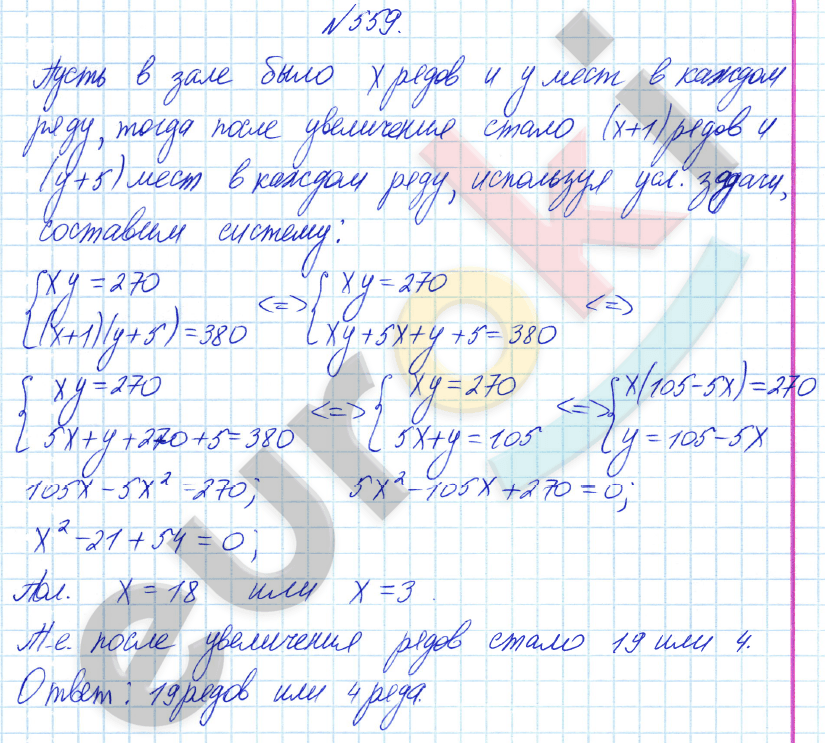 №559.
Пусть в зале было x рядов и y мест в каждом
ряду, тогда после увеличения стало (x+1) рядов и
(y+5) мест в каждом ряду, используя усл. задачи,
составим систему:
{ xy = 270 <=> { xy = 270 <=>
{ (x+1)(y+5) = 380 { xy+5x+y+5 = 380
{ xy = 270 <=> { xy = 270 <=> { x(105-5x) = 270
{ 5x+y+270+5 = 380 { 5x+y = 105 { y = 105-5x
105x - 5x² = 270; 5x² - 105x + 270 = 0;
x² - 21 + 54 = 0;
Пол. x = 18 или x = 3.
Т.е. после увеличения рядов стало 19 или 4.
Ответ: 19 рядов или 4 ряда.
euroki